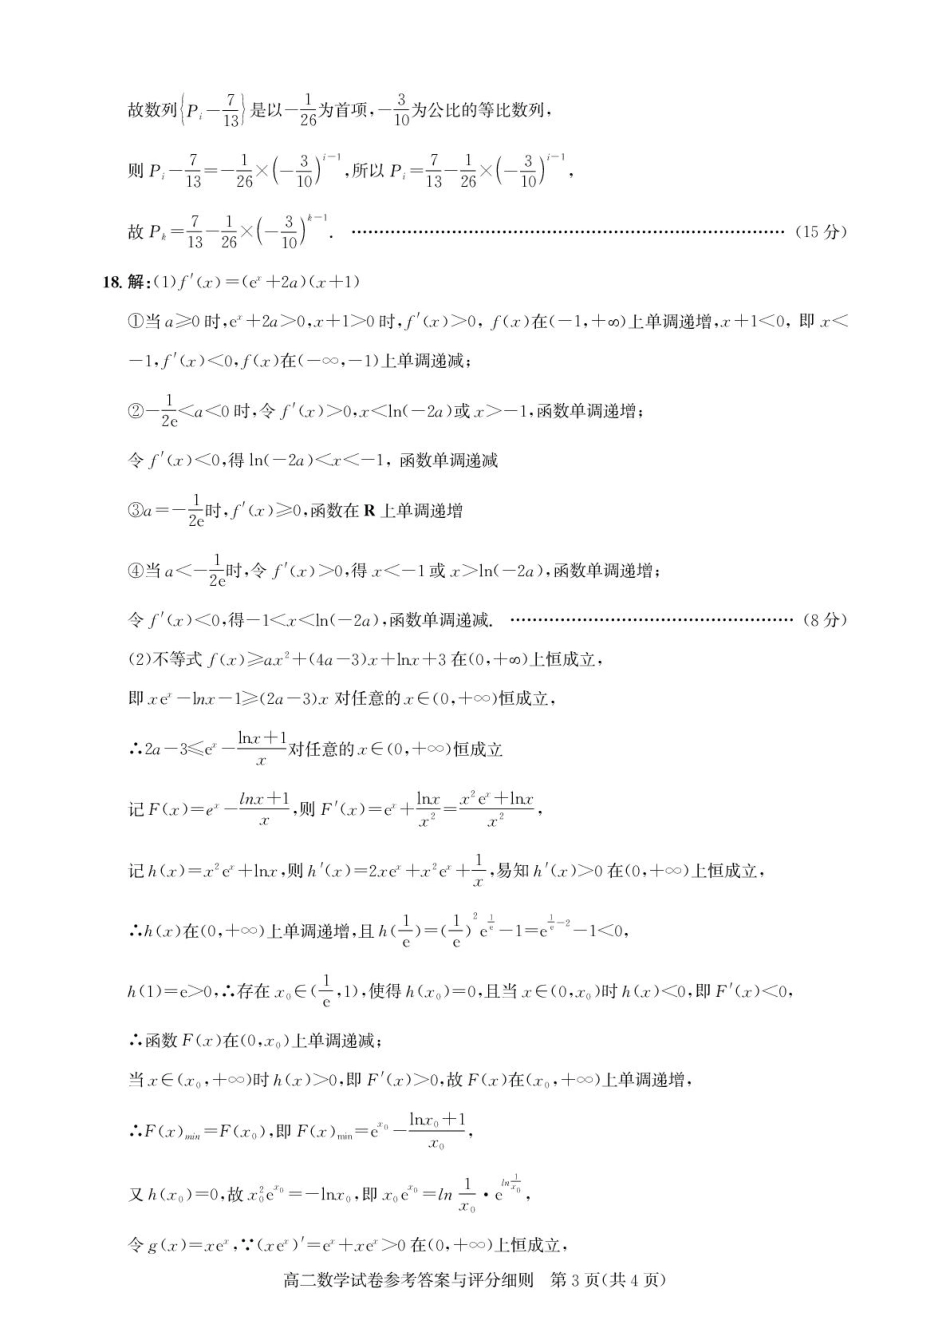 故数列{Pᵢ−7/13}是以−1/26为首项,−3/10为公比的等比数列,
则 Pᵢ−7/13=−1/26×(−3/10)^(i−1),所以 Pᵢ=7/13−1/26×(−3/10)^(i−1),
故 Pₖ=7/13−1/26×(−3/10)^(k−1). ………………………………………………………………… (15 分)
18. 解:(1)f′(x)=(eˣ+2a)(x+1)
①当 a⩾0 时,eˣ+2a>0,x+1>0 时,f′(x)>0, f(x)在(−1,+∞)上单调递增,x+1<0, 即 x<
−1,f′(x)<0,f(x)在(−∞,−1)上单调递减;
②−1/2e<a<0 时,令 f′(x)>0,x<ln(−2a)或 x>−1,函数单调递增;
令 f′(x)<0,得 ln(−2a)<x<−1, 函数单调递减
③a=−1/2e时,f′(x)⩾0,函数在 R 上单调递增
④当 a<−1/2e时,令 f′(x)>0,得 x<−1 或 x>ln(−2a),函数单调递增;
令 f′(x)<0,得−1<x<ln(−2a),函数单调递减. …………………………………………… (8 分)
(2)不等式 f(x)⩾ax²+(4a−3)x+lnx+3 在(0,+∞)上恒成立,
即 xeˣ−lnx−1⩾(2a−3)x 对任意的 x∈(0,+∞)恒成立,
∴2a−3⩽eˣ−(lnx+1)/x对任意的 x∈(0,+∞)恒成立
记 F(x)=eˣ−(lnx+1)/x,则 F′(x)=eˣ+lnx/x²=(x²eˣ+lnx)/x²,
记 h(x)=x²eˣ+lnx,则 h′(x)=2xeˣ+x²eˣ+1/x,易知 h′(x)>0 在(0,+∞)上恒成立,
∴h(x)在(0,+∞)上单调递增,且 h(1/e)=(1/e)²e^(1/e)−1=e^(1/e−2)−1<0,
h(1)=e>0,∴存在 x₀∈(1/e,1),使得 h(x₀)=0,且当 x∈(0,x₀)时 h(x)<0,即 F′(x)<0,
∴函数 F(x)在(0,x₀)上单调递减;
当 x∈(x₀,+∞)时 h(x)>0,即 F′(x)>0,故 F(x)在(x₀,+∞)上单调递增,
∴F(x)min=F(x₀),即 F(x)min=e^(x₀)−(lnx₀+1)/x₀,
又 h(x₀)=0,故 x₀²e^(x₀)=−lnx₀,即 x₀e^(x₀)=ln 1/x₀·e^(ln 1/x₀),
令 g(x)=xeˣ,∵(xeˣ)′=eˣ+xeˣ>0 在(0,+∞)上恒成立,
高二数学试卷参考答案与评分细则 第 3 页(共 4 页)